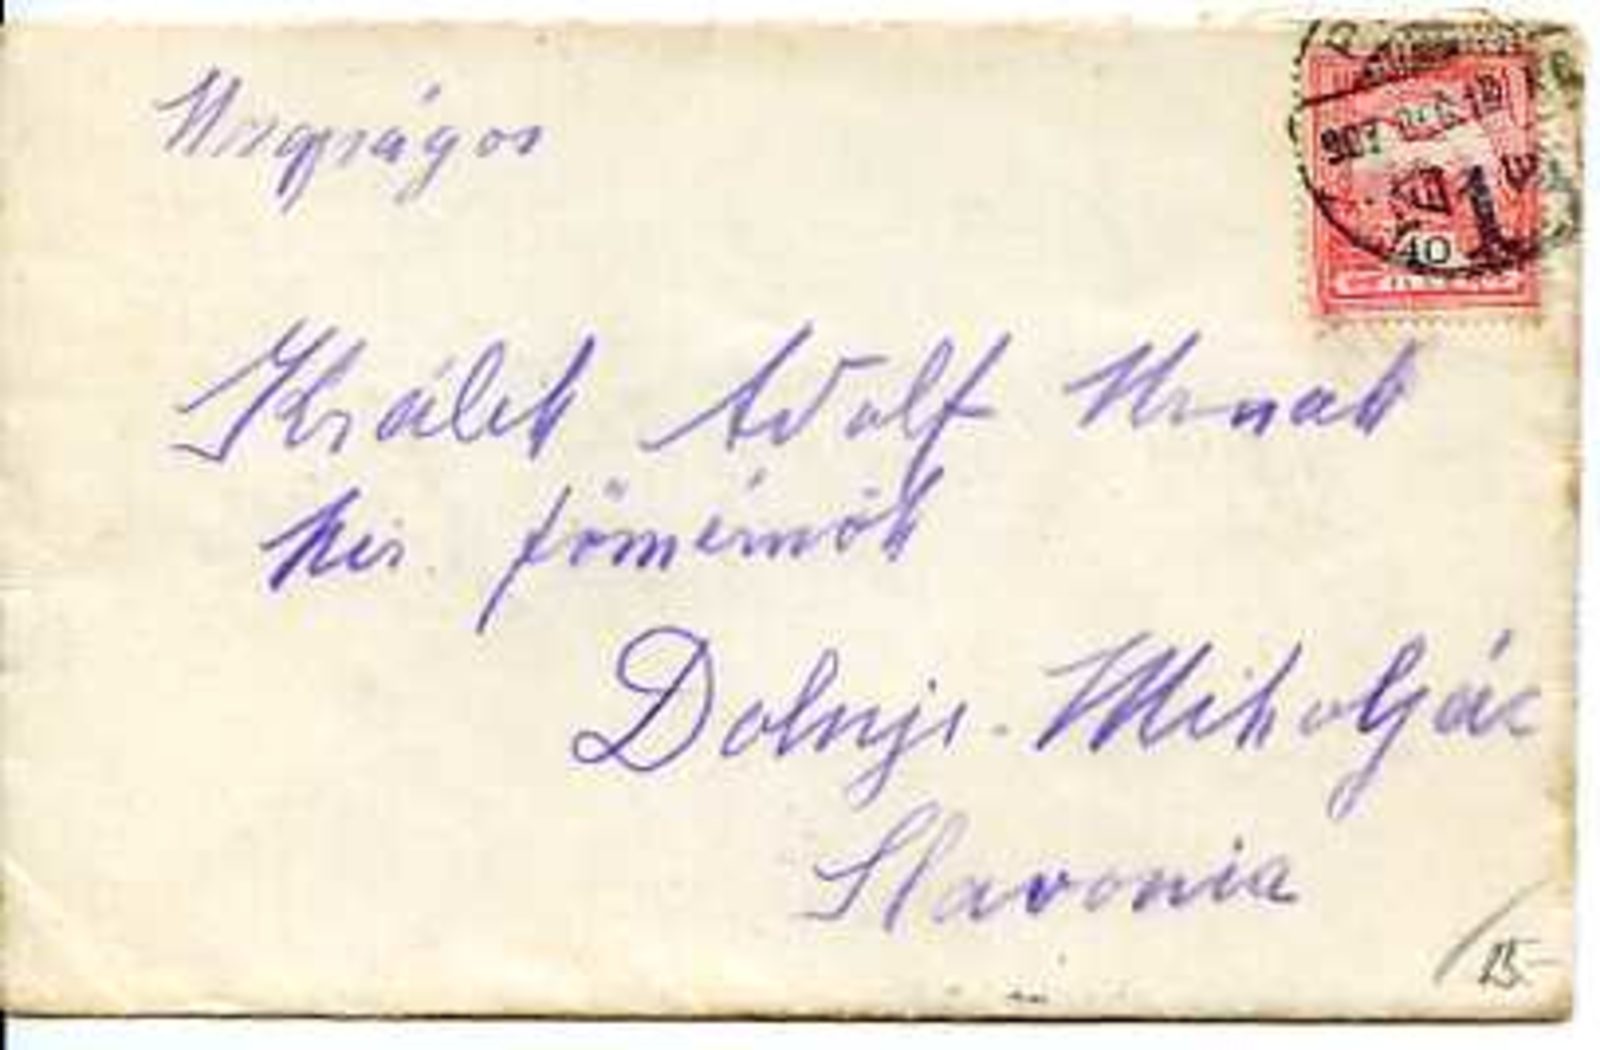 Nagyságos
Králik Adolf Urnak
kir. főmérnök
Dolnji-Miholjác
Slavonia
907
1
10
25.-